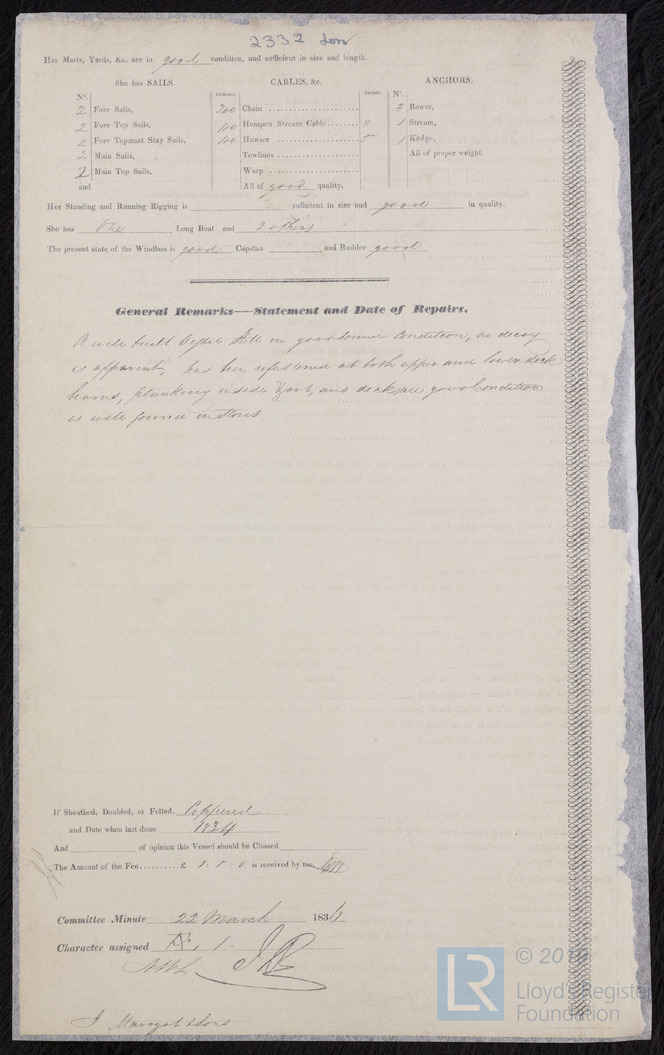 2332 Lon
Her Masts, Yards, &c. are in good condition, and sufficient in size and length.
She has SAILS. CABLES, &c. ANCHORS.
N°. Fathoms. Inches. N°.
2 Fore Sails, 200 Chain 3 Bower,
2 Fore Top Sails, 100 Hempen Stream Cable 8 1 Stream,
2 Fore Topmast Stay Sails, 100 Hawser 5 1 Kedge,
2 Main Sails, Towlines All of proper weight.
2 Main Top Sails, Warp
and All of good quality.
Her Standing and Running Rigging is sufficient in size and good in quality.
She has One Long Boat and 2 others
The present state of the Windlass is good Capstan and Rudder good
General Remarks—Statement and Date of Repairs.
A well built Vessel still in good sound Condition, no decay
is apparent, has been refastened at both upper and lower deck
beams, planking inside & out, and decks are good Condition
is well found in Stores
If Sheathed, Doubled, or Felted, Coppered
and Date when last done 1834
And of opinion this Vessel should be Classed
The Amount of the Fee £ 1 : 0 : 0 is received by me,
Committee Minute 22 March 183
Character assigned 1
J & Sons
© 201
LR
Lloyd's Register
Foundation